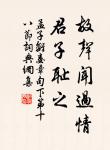 故聲聞過情
君子恥之
孟子離婁章句下第十
八節詞典網喜